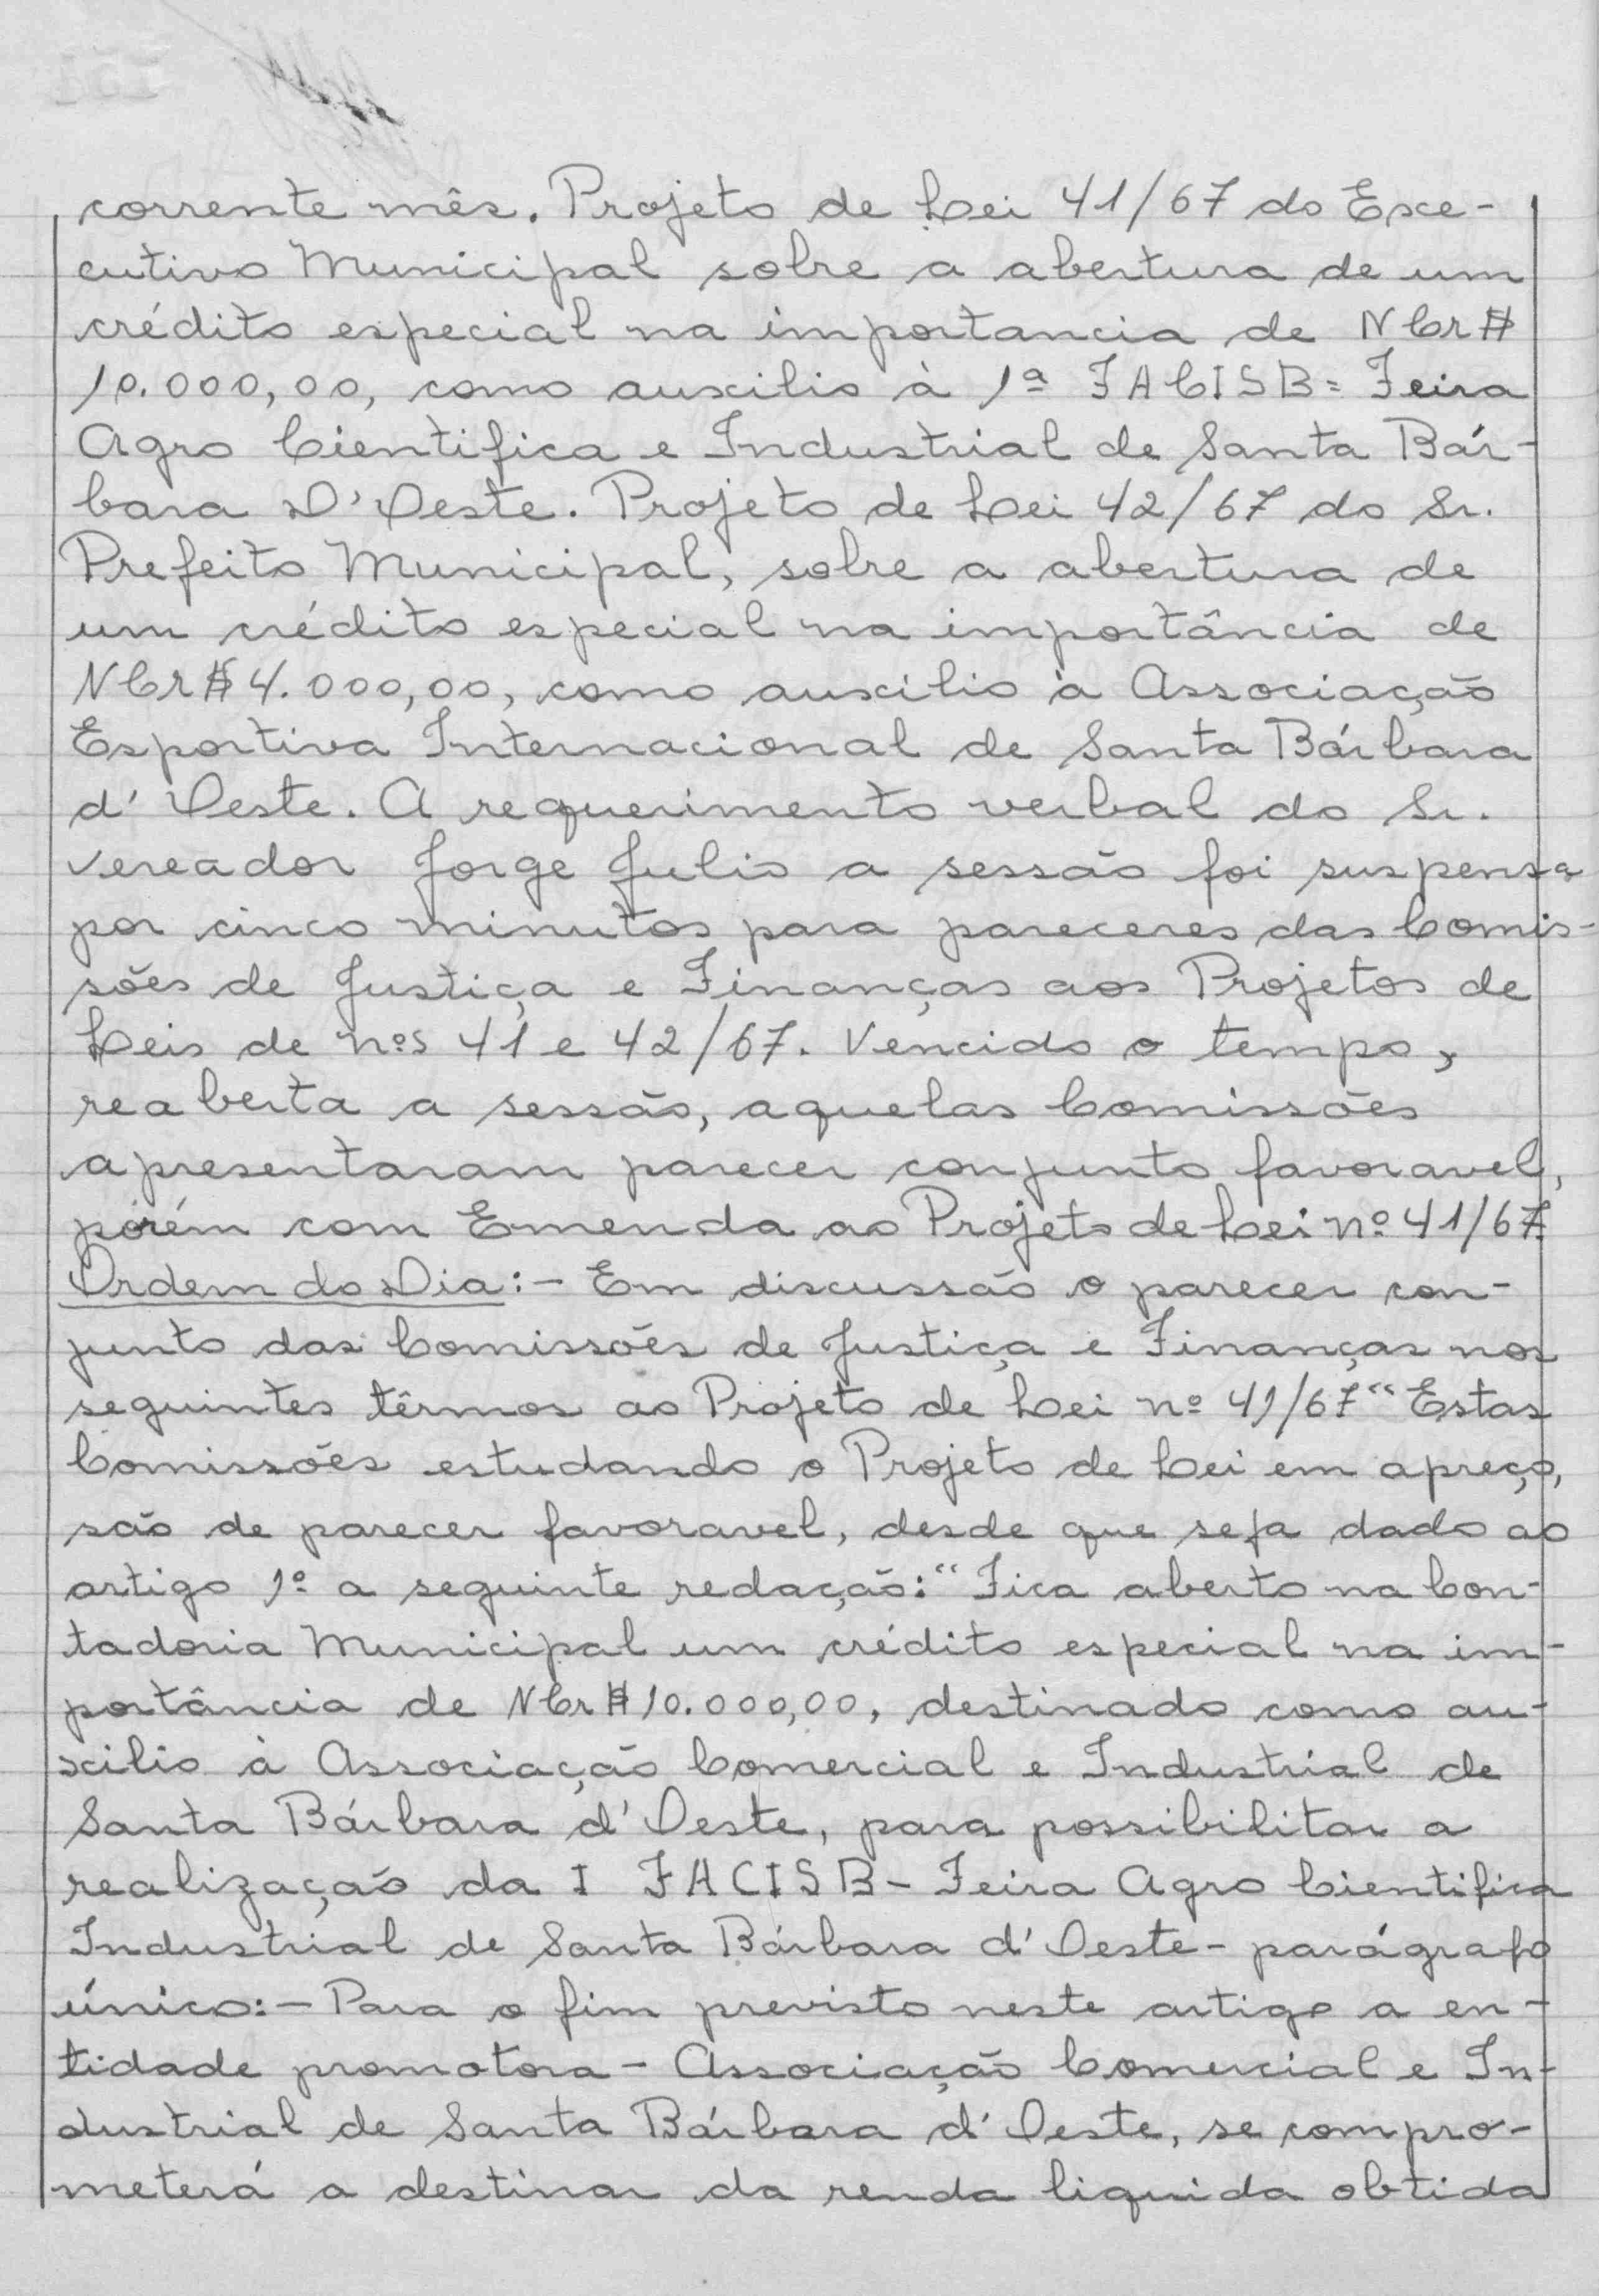 corrente mês. Projeto de Lei 41/67 do Exe-
cutivo Municipal sobre a abertura de um
crédito especial na importancia de NCr$
10.000,00, como auxilio à 1ª FACISB= Feira
Agro Cientifica e Industrial de Santa Bár-
bara D'Oeste. Projeto de Lei 42/67 do Sr.
Prefeito Municipal, sobre a abertura de
um crédito especial na importância de
NCr$ 4.000,00, como auxilio à Associação
Esportiva Internacional de Santa Bárbara
d'Oeste. A requerimento verbal do Sr.
vereador Jorge Julio a sessão foi suspensa
por cinco minutos para pareceres das Comis-
sões de Justiça e Finanças aos Projetos de
Leis de nos 41 e 42/67. Vencido o tempo,
reaberta a sessão, aquelas Comissões
apresentaram parecer conjunto favoravel,
porém com Emenda ao Projeto de Lei nº 41/67.
Ordem do Dia:- Em discussão o parecer con-
junto das Comissões de Justiça e Finanças nos
seguintes têrmos ao Projeto de Lei nº 41/67 "Estas
Comissões estudando o Projeto de Lei em apreço,
são de parecer favoravel, desde que seja dado ao
artigo 1º a seguinte redação: "Fica aberto na Con-
tadoria Municipal um crédito especial na im-
portância de NCr$ 10.000,00, destinado como au-
xilio à Associação Comercial e Industrial de
Santa Bárbara d'Oeste, para possibilitar a
realização da I FACISB- Feira Agro Cientifica
Industrial de Santa Bárbara d'Oeste- parágrafo
único:- Para o fim previsto neste artigo a en-
tidade promotora- Associação Comercial e In-
dustrial de Santa Bárbara d'Oeste, se compro-
meterá a destinar da renda liquida obtida